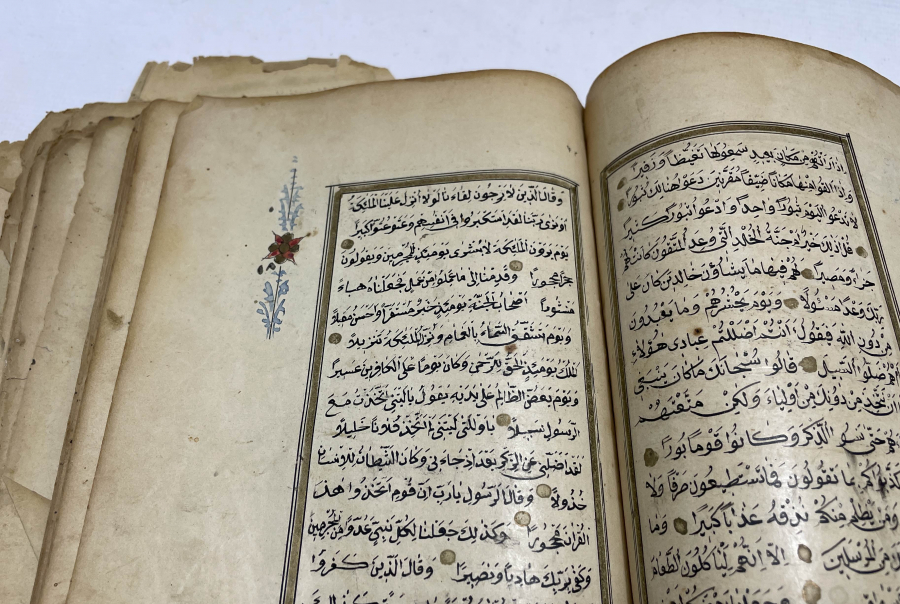 اذا راتهم من مكان بعيد سمعوا لها تغيظا وزفيرا
واذا القوا منها مكانا ضيقا مقرنين دعوا هنالك ثبورا
لا تدعوا اليوم ثبورا واحدا وادعوا ثبورا كثيرا
قل اذلك خير ام جنة الخلد التي وعد المتقون كانت لهم
جزاء ومصيرا لهم فيها ما يشاؤن خالدين كان على
ربك وعدا مسئولا ويوم يحشرهم وما يعبدون
من دون الله فيقول ءانتم اضللتم عبادي هؤلاء
ام هم ضلوا السبيل قالوا سبحانك ما كان ينبغي
ان نتخذ من دونك من اولياء ولكن متعتهم
حتى نسوا الذكر وكانوا قوما بورا
كذبوكم بما تقولون فما تستطيعون صرفا ولا
ومن يظلم منكم نذقه عذابا كبيرا وما
من المرسلين الا انهم لياكلون الطعام
وقال الذين لا يرجون لقاءنا لولا انزل علينا الملئكة
او نرى ربنا لقد استكبروا في انفسهم وعتو عتوا كبيرا
يوم يرون الملئكة لا بشرى يومئذ للمجرمين ويقولون
حجرا محجورا وقدمنا الى ما عملوا من عمل فجعلناه هباء
منثورا اصحاب الجنة يومئذ خير مستقرا واحسن مقيلا
ويوم تشقق السماء بالغمام ونزل الملئكة تنزيلا
الملك يومئذ الحق للرحمن وكان يوما على الكافرين عسيرا
ويوم يعض الظالم على يديه يقول يا ليتني اتخذت مع
الرسول سبيلا يا ويلتى ليتني لم اتخذ فلانا خليلا
لقد اضلني عن الذكر بعد اذ جاءني وكان الشيطان للانسان
خذولا وقال الرسول يا رب ان قومي اتخذوا هذا
القران مهجورا وكذلك جعلنا لكل نبي عدوا من المجرمين
وكفى بربك هاديا ونصيرا وقال الذين كفروا